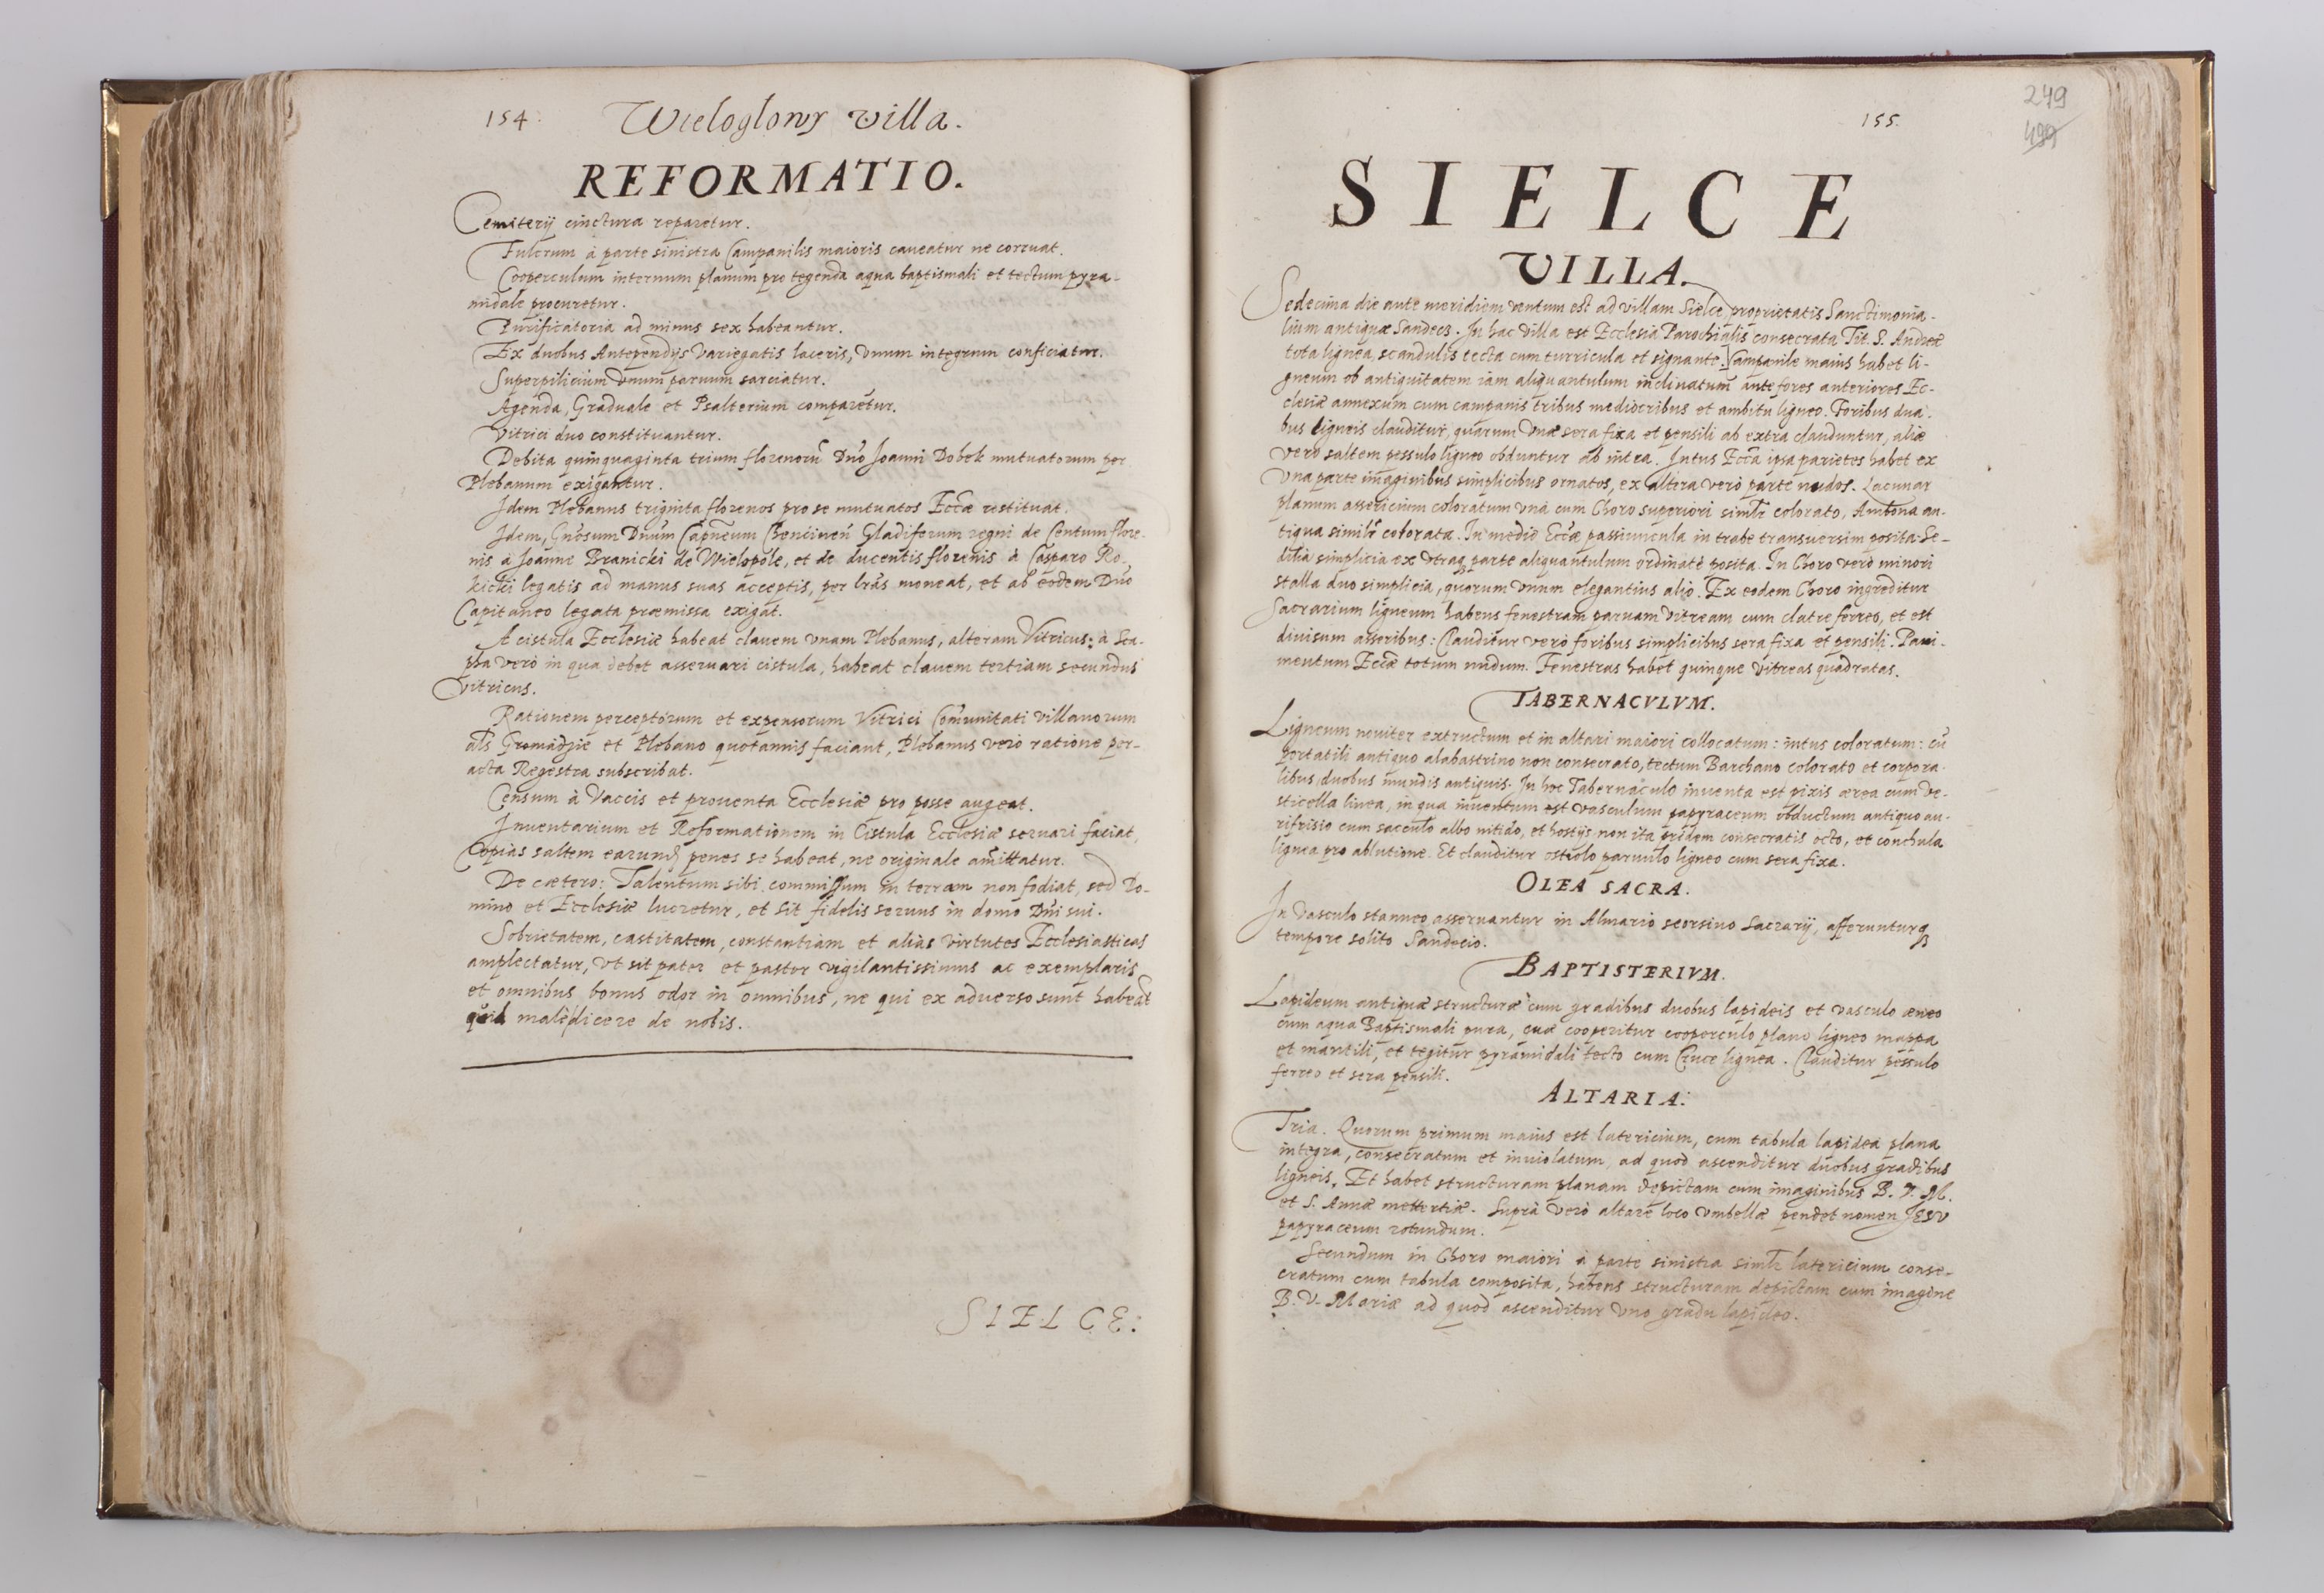 154.
Wieloglowy Villa.
REFORMATIO.
Cemiterij cinctura reparetur.
Fulcrum à parte sinistra Campanilis maioris caueatur ne corruat.
Cooperculum internum planum pro tegenda aqua baptismali et tectum pyra-
midale procuretur.
Purificatoria ad minus sex habeantur.
Ex duobus Antependijs Variegatis laceris, Vnum integrum conficiatur.
Superpilicium Vnum paruum sarciatur.
Agenda, Graduale et Psalterium comparetur.
Vitrici duo constituantur.
Debita quinquaginta trium florenorũ Dn̄o Joanni Dobek mutuatorum per
Plebanum exigantur.
Idem Plebanus triginta florenos pro se mutuatos Eccæ restituat.
Idem, Gnosum Dnum Capneum Chencinen Gladiferum regni de Centum flore-
nis à Joanne Branicki de Wielopole, et de ducentis florenis à Casparo Ro-
kicki legatis ad manus suas acceptis, per lras moneat, et ab eodem Dno
Capitaneo legata præmissa exigat.
A cistula Ecclesiæ habeat clauem vnam Plebanus, alteram Vitricus: à Sca-
pha verò in qua debet asseruari cistula, habeat clauem tertiam secundus
Vitricus.
Rationem perceptorum et expensorum Vitrici Comunitati Villanorum
als Gromadzie et Plebano quotannis faciant, Plebanus verò ratione per-
acta Regestra subscribat.
Censum à Vaccis et prouenta Ecclesiæ pro posse augeat.
Inuentarium et Reformationem in Cistula Ecclesiæ seruari faciat,
Copias saltem earund penes se habeat, ne originale amittatur.
De cætero: Talentum sibi commissum in terram non fodiat, sed Do-
mino et Ecclesiæ lucretur, et sit fidelis seruus in domo Dni sui.
Sobrietatem, castitatem, constantiam et alias virtutes Ecclesiasticas
amplectatur, Vt sit pater et pastor vigilantissimus ac exemplaris
et omnibus bonus odor in omnibus, ne qui ex aduerso sunt habeāt
quid maledicere de nobis.
SIELCE:
249
499
155.
SIELCE
VILLA.
Sedecima die ante meridiem Ventum est ad villam Sielce, proprietatis Sanctimonia-
lium antiquæ Sandecz. In hac Villa est Ecclesia Parochialis consecrata Tit. S. Andreæ
tota lignea, scandulis tecta cum turricula et signante. Campanile maius habet li-
gneum ob antiquitatem iam aliquantulum inclinatum ante fores anteriores Ec-
clesiæ annexum cum campanis tribus mediocribus et ambitu ligneo. Foribus dua-
bus ligneis clauditur, quarum Vnæ sera fixa et pensili ab extra clauduntur, aliæ
Vero saltem pessulo ligneo obduntur ab intra. Intus Ecca ipsa parietes habet ex
Vna parte imaginibus simplicibus ornatos, ex altera verò parte nudos. Lacunar
planum assericium coloratum Vnà cum Choro superiori simlr colorato, Ambona an-
tiqua simlr colorata. In medio Eccæ passiuncula in trabe transuersim posita. Se-
dilia simplicia ex Vtraq parte aliquantulum ordinatè posita. In Choro verò minori
stalla duo simplicia, quorum Vnum elegantius alio. Ex eodem Choro ingreditur
Sacrarium ligneum habens fenestram paruam Vitream cum clatre ferreo, et est
diuisum asseribus: Clauditur verò foribus simplicibus sera fixa et pensili. Paui-
mentum Eccæ totum nudum. Fenestras habet quinque Vitreas quadratas.
TABERNACVLVM.
Ligneum nouiter extructum et in altari maiori collocatum: intus coloratum: cũ
portatili antiquo alabastrino non consecrato, tectum Barchano colorato et corpora-
libus duobus mundis antiquis. In hoc Tabernaculo inuenta est pixis ærea cum Ve-
sticella linea, in qua inuentum est Vasculum papyraceum obductum antiquo au-
rifrisio cum sacculo albo nitido, et hostijs non ita pridem consecratis octo, et conchula
lignea pro ablutione. Et clauditur ostiolo paruulo ligneo cum sera fixa.
OLEA SACRA.
In Vasculo stanneo asseruantur in Almario seorsiuo Sacrarij, afferunturq
tempore solito Sandecio.
BAPTISTERIVM.
Lapideum antiquæ structuræ cum gradibus duobus lapideis et Vasculo æneo
cum aqua Baptismali pura, quæ cooperitur cooperculo plano ligneo mappa
et mantili, et tegitur pyramidali tecto cum Cruce lignea. Clauditur pessulo
ferreo et sera pensili.
ALTARIA.
Tria. Quorum primum maius est latericium, cum tabula lapidea plana
integra, consecratum et inuiolatum, ad quod ascenditur duobus gradibus
ligneis. Et habet structuram planam depictam cum imaginibus B. V. M.
et S. Annæ mettertiæ. Suprà Verò altare loco Vmbellæ pendet nomen JESV
papyraceum rotundum.
Secundum in Choro maiori à parte sinistra simlr latericium conse-
cratum cum tabula composita, habens structuram depictam cum imagine
B. V. Mariæ ad quod ascenditur Vno gradu lapideo.